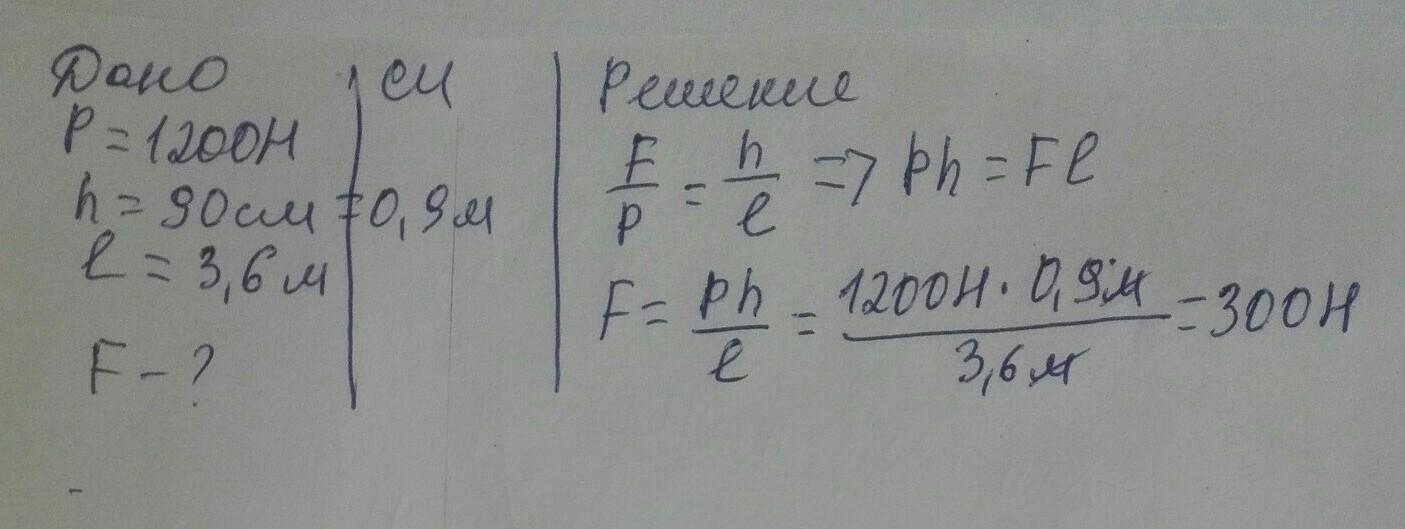 Дано
P = 1200Н
h = 90см = 0,9м
l = 3,6м
F - ?
СИ
Решение
F/P = h/l => Ph = Fl
F = Ph/l = 1200Н · 0,9м/3,6м = 300Н